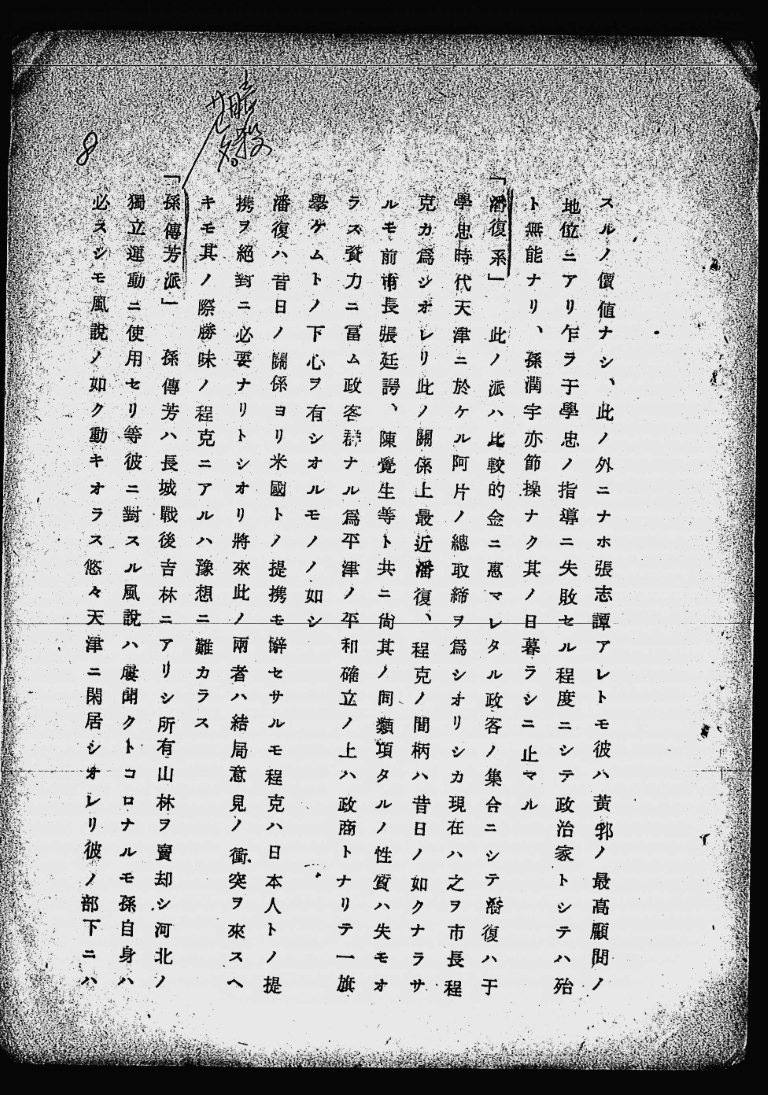 スルノ價値ナシ、此ノ外ニナホ張志譚アレトモ彼ハ黃郛ノ最高顧問ノ
地位ニアリ乍ラ于學忠ノ指導ニ失敗セル程度ニシテ政治家トシテハ殆
ト無能ナリ、孫潤宇亦節操ナク其ノ日暮ラシニ止マル
「潘復系」 此ノ派ハ比較的金ニ惠マレタル政客ノ集合ニシテ潘復ハ于
學忠時代天津ニ於ケル阿片ノ總取締ヲ爲シオリシカ現在ハ之ヲ市長程
克カ爲シオレリ此ノ關係上最近潘復、程克ノ間柄ハ昔日ノ如クナラサ
ルモ前市長張廷諤、陳覺生等ト共ニ尙其ノ同類項タルノ性質ハ失モオ
ラス資力ニ富ム政客群ナル爲平津ノ平和確立ノ上ハ政商トナリテ一旗
擧ケムトノ下心ヲ有シオルモノノ如シ
潘復ハ昔日ノ關係ヨリ米國トノ提携モ辭セサルモ程克ハ日本人トノ提
携ヲ絕對ニ必要ナリトシオリ將來此ノ兩者ハ結局意見ノ衝突ヲ來スヘ
キモ其ノ際勝味ノ程克ニアルハ豫想ニ難カラス
「孫傳芳派」 孫傳芳ハ長城戰後吉林ニアリシ所有山林ヲ賣却シ河北ノ
獨立運動ニ使用セリ等彼ニ對スル風說ハ屢聞クトコロナルモ孫自身ハ
必スシモ風說ノ如ク動キオラス悠々天津ニ閑居シオレリ彼ノ部下ニハ
暗殺
サル
8